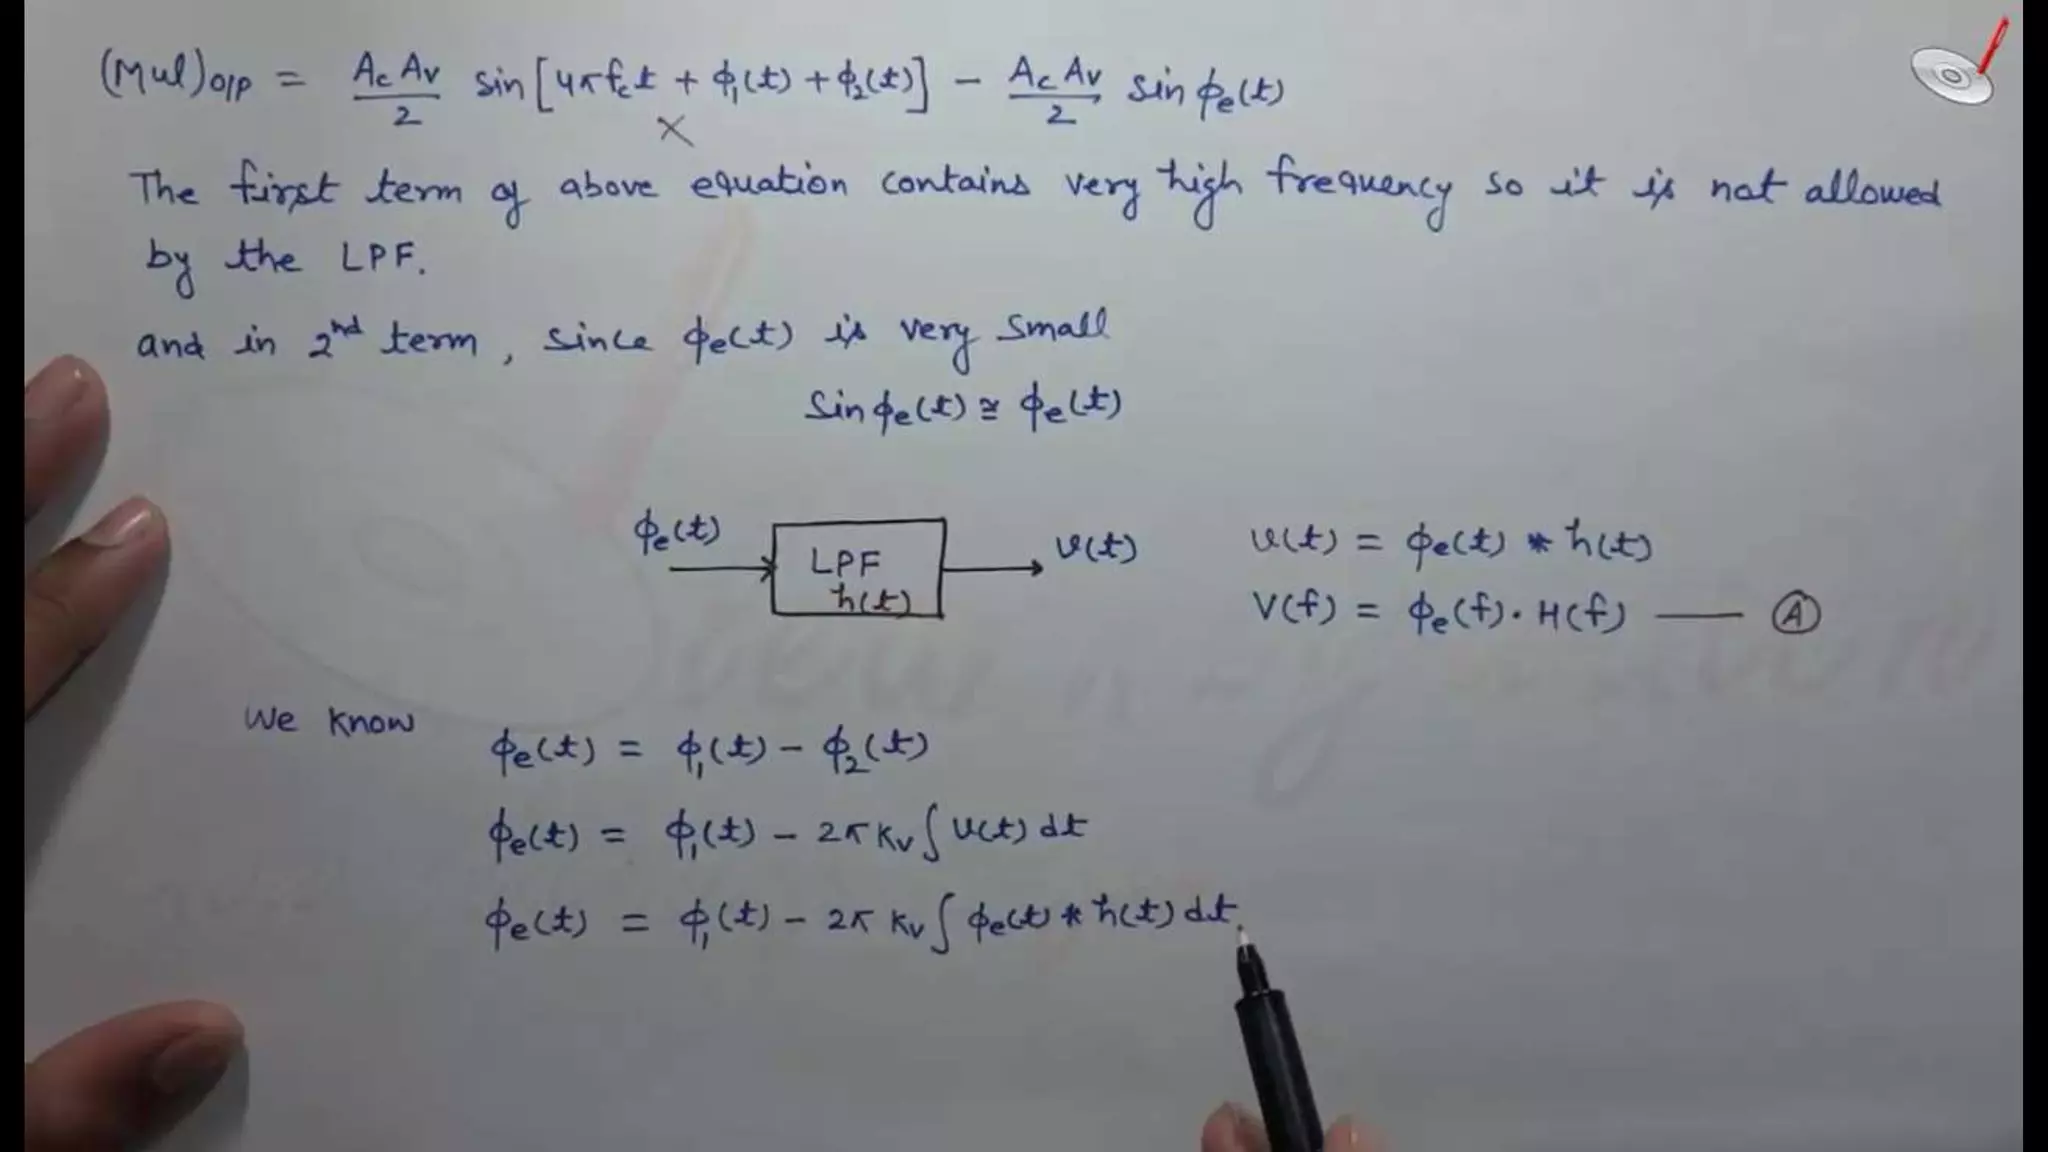 (Mul)O/P = AcAv/2 sin[4πfct + ϕ1(t) + ϕ2(t)] − AcAv/2 sin ϕe(t)
×
The first term of above equation contains very high frequency so it is not allowed
by the LPF.
and in 2nd term, since ϕe(t) is very small
sin ϕe(t) ≅ ϕe(t)
ϕe(t) LPF h(t) v(t)
v(t) = ϕe(t) * h(t)
V(f) = ϕe(f) · H(f) —— (A)
We know
ϕe(t) = ϕ1(t) − ϕ2(t)
ϕe(t) = ϕ1(t) − 2π Kv ∫ v(t) dt
ϕe(t) = ϕ1(t) − 2π Kv ∫ ϕe(t) * h(t) dt.